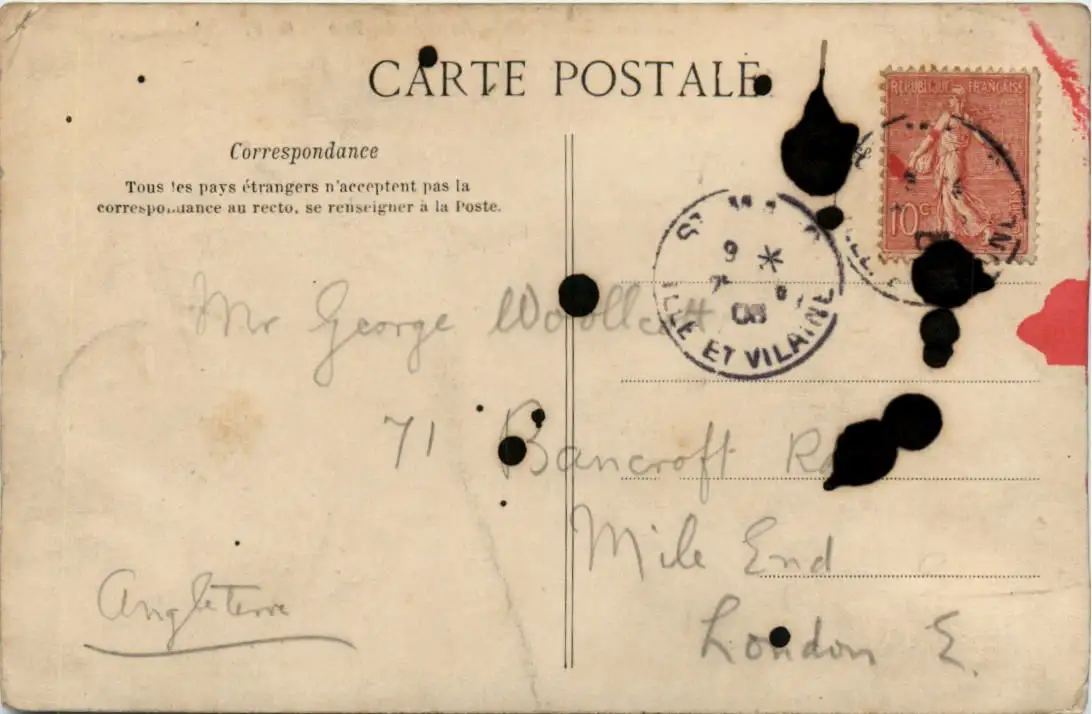 CARTE POSTALE
Correspondance
Tous les pays étrangers n'acceptent pas la
correspondance au recto, se renseigner à la Poste.
REPUBLIQUE FRANÇAISE
10c
9 *
08
ILLE ET VILAINE
Mr George Woollcott
71 Bancroft
Mile End
London E.
Angleterre